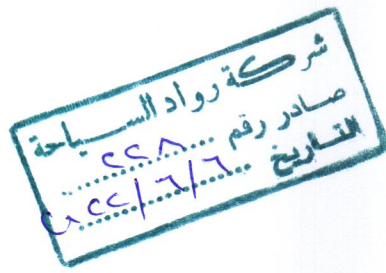 شركة رواد السياحة
صادر رقم ٢٢٨
التاريخ ٢٠٢٢/٦/٦